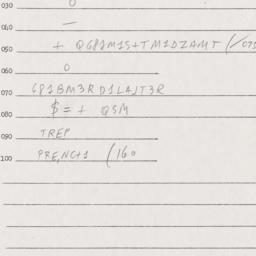 030 0
040 —
050 + Q681M1S+TM1DZAMT (/075
060 0
070 681BM3RD1LAJT3R
080 $=+ QSM
090 TREP
100 PRE,NC+1 (160